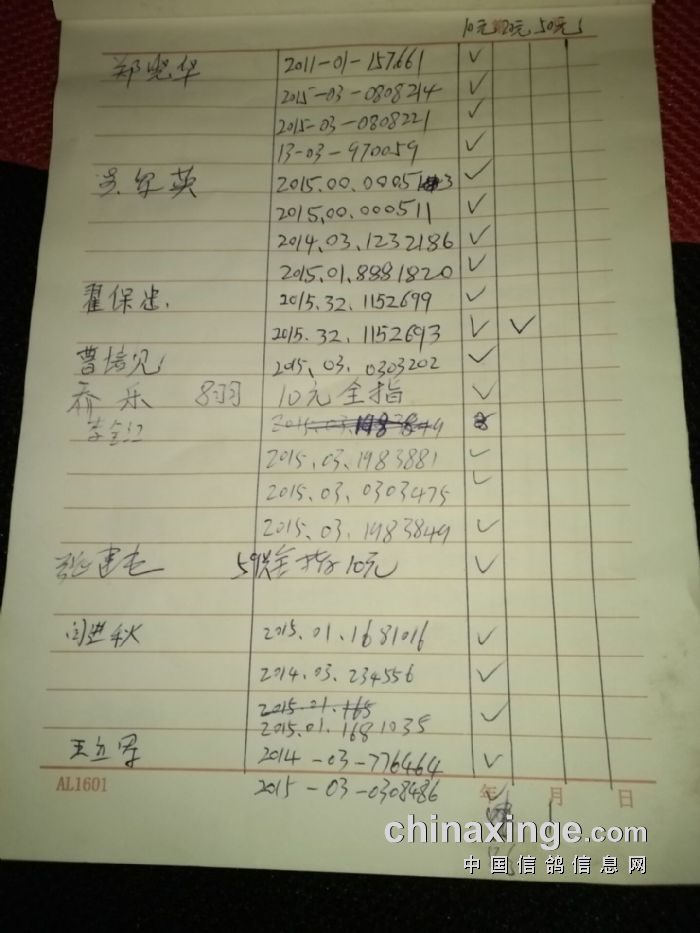 10元 20元 50元
郑晓华 2011-01-157661 ✓
2015-03-0808214 ✓
2015-03-0808221 ✓
13-03-970059 ✓
2015.00.00051 3 ✓
2015.00.000511 ✓
2014.03.1232186 ✓
2015.01.8881820 ✓
翟保忠. 2015.32.1152699 ✓
2015.32.1152693 ✓ ✓
曹培见 2015.03.0303202 ✓
乔乐 8羽 10元全指 ✓
李全江 2015.03.1983849
2015.03.1983881 ✓
2015.03.0303475 ✓
2015.03.1983849 ✓
建 全指10元 ✓
闫进秋 2015.01.1681016 ✓
2014.03.234556 ✓
2015.01.165
2015.01.1681035 ✓
王立军 2014-03-776464 ✓
AL1601 年 月 日
2015-03-0308486 ✓
chinaxinge.com
中国信鸽信息网